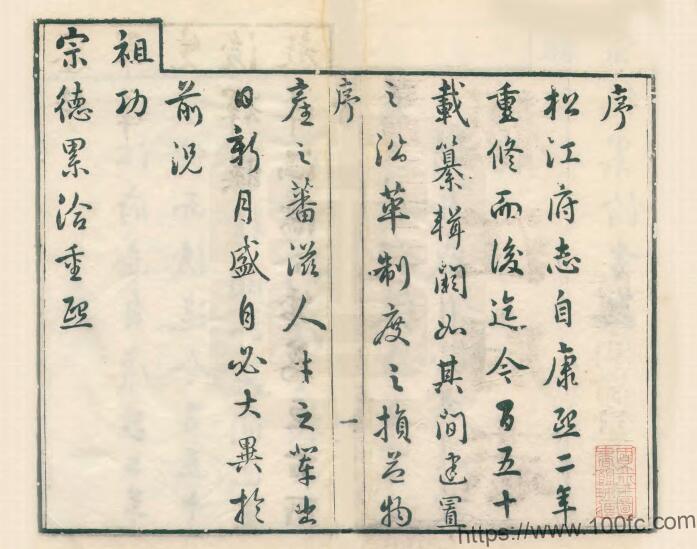 序
松江府志自康熙二年
重修而後迄今百五十
載纂輯闕如其間建置
之沿革制度之損益物
序
一
產之蕃滋人才之輩出
日新月盛自必大異於
前況
祖功
宗德累洽重熙
https://www.100fc.com